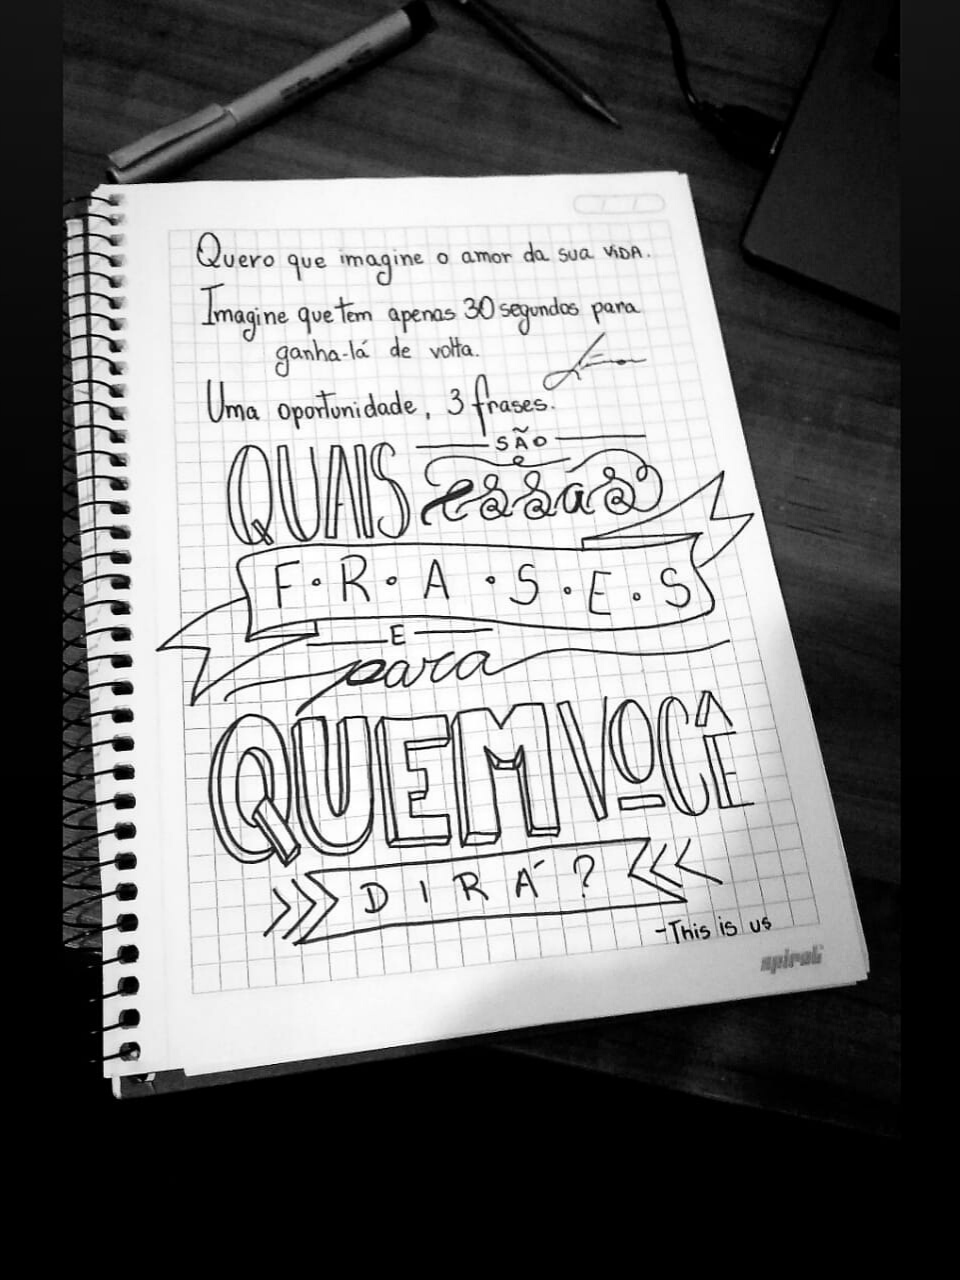 Quero que imagine o amor da sua VIDA.
Imagine que tem apenas 30 segundos para
ganha-lá de volta.
Uma oportunidade, 3 frases.
QUAIS SÃO essas
F·R·A·S·E·S
E
para
QUEM VOCÊ
DIRÁ?
-This is us
spiral